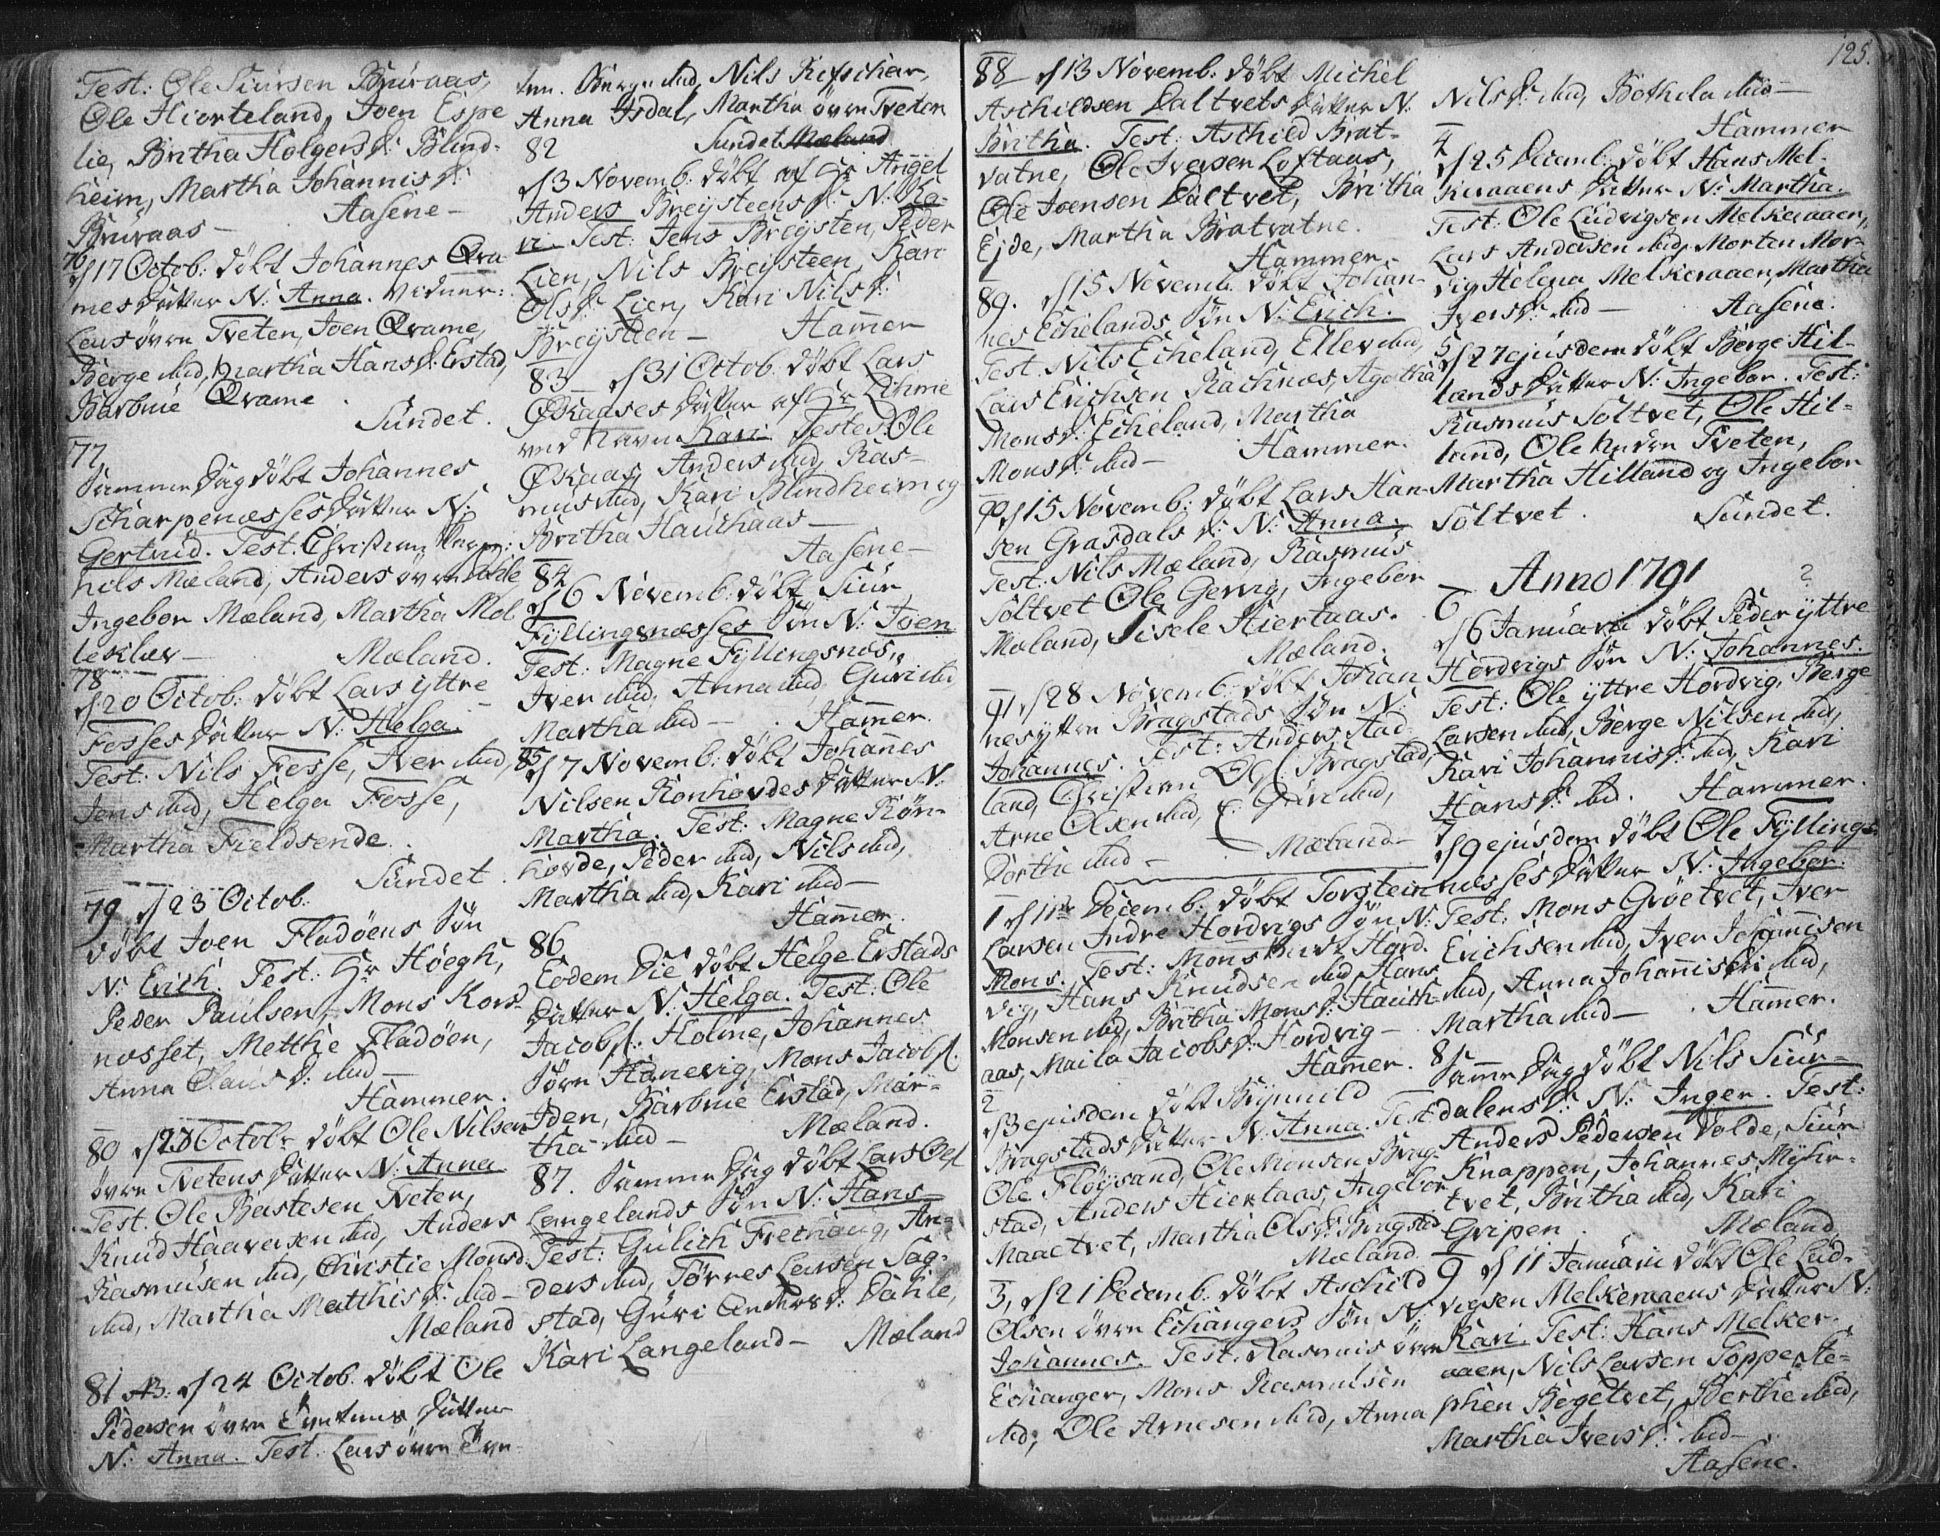 Test: Ole Siursen Bruraas,
Ole Hiorteland, Joen Espe
lie, Britha Holgersd: Blind-
heim, Martha Johannisd:
Bruraas — Aasene —
76
d 17 Octob: döbt Johannes Qva-
mes datter N: Anna. Vidner:
Lars övre Tveten, Joen Qvame,
Berge ibid, Martha Hansd: Erstad,
Barbrue Qvame.
Sundet.
77
Samme dag döbt Johannes
Scharpenæsses datter N:
Gertrud. Test: Christian
Nils Mæland, Anders övre Dahle
Ingebor Mæland, Martha Mol
leklev — Mæland.
78
d 20 Octob: döbt Lars yttre
Fosses datter N: Helga.
Test: Nils Fosse, Iver ibid,
Jens ibid, Helga Fosse,
Martha Fieldsende.
Sundet.
79 d 23 Octob.
döbt Joen Fladöens Sön
N: Erich. Test: Hr Höegh,
Peder Paulsen, Mons Kors-
nosset, Metthe Fladöen,
Anna Clausd: ibid —
Hammer.
80 d 23 Octobr döbt Ole Nilsen
övre Tvetens datter N: Anna
Test. Ole Bastesen Tveten,
Knud Haaversen ibid, Anders
Rasmusen ibid, Christie Monsd.
ibid, Martha Matthisd: ibid —
Mæland
81 d 24 Octob. döbt Ole
Pedersen övre Tvetens datter
N: Anna. Test. Lars övre Tve-
ten. Berge ibid, Nils Refschar,
Anna Isdal, Martha övre Tveten
Sundet
82
d 3 Novemb: döbt af Hr Angel
Anders Breysteens d: N: Ka-
ri — Test: Jens Breysten, Peder
Lien, Nils Breysteen, Kari
Olsd: Lien, Kari Nilsd:
Breysteen — Hammer
83 — d 31 Octob. döbt Lars
Økaases datter af Hr Zihme
ved Navn Kari. Testes Ole
Økaas, Anders ibid, Ras-
mus ibid, Kari Blindheim og
Britha Hauchaas —
Aasene —
84
d 6 Novemb: döbt Siur
Fyllingsnæsses Sön N: Joen
Test: Magne Fyllingsnos,
Iver ibid, Anna ibid, Guri ibid
Martha ibid — Hammer.
85
d 7 Novemb: döbt Johannes
Nilsen Rönhovdes datter N:
Martha. Test: Magne Rön-
hovde, Peder ibid, Nils ibid,
Martha ibid, Kari ibid —
Hammer.
86
Eodem Die döbt Helge Erstads
datter N: Helga. Test: Ole
Jacobs. Holme, Johannes
Sörn Hanevig, Mons Jacobs.
Iden, Barbrue Erstad, Mar-
tha ibid — Mæland.
87. Samme Dag döbt Lars Ols
Langelands Sön N: Hans
Test: Gulich Frechoug, An-
ders ibid, Törres Larsen Sag-
stad, Guri Andersd: Dahle,
Kari Langeland — Mæland
125.
88 d 13 Novemb: döbt Michel
Aschildsen Daltvets datter N.
Britha. Test: Aschild Brat-
vatne, Ole Iversen Loftaas,
Ole Joensen Daltvet, Britha
Eide, Martha Bratvatne.
Hammer
89. d 15 Novemb. döbt Johan-
nes Echelands Sön N: Erich.
Test. Nils Echeland, Ellev ibid,
Lars Erichsen Rachnes, Agatha
Monsd: Echeland, Martha
Monsd: ibid — Hammer.
90 d 15 Novemb: döbt Lars Han-
sen Grasdals d: N: Anna.
Test: Nils Mæland, Rasmus
Soltvet Ole Gervig, Ingebor
Mæland, Sisele Hiertaas.
Mæland.
91 d 28 Novemb: döbt Johan
nes yttre Bragstads Sön N:
Johannes. Test: Anders Aad-
land, Christian Ols. Bragstad,
Arne Olsen ibid, Guri ibid,
Dorthe ibid — Mæland —
1 d 11te Decemb: döbt Torstein
Larsen Indre Hordvigs Sön N:
Mons. Test: Mons Hord-
vig, Hans Knudsen ibid, Hans
Monsen ibid, Britha Monsd: Hauch-
aas, Maila Jacobsd: Hordvig —
Hammer.
2
d 13 ejusdem döbt Brynnild
Bragstads datter N: Anna. Test
Ole Flöysand, Ole Monsen Brag-
stad, Anders Hiertaas, Ingebor
Maaetvet, Martha Olsd: Bragstad
Mæland.
3, d 21 Decemb: döbt Aschild
Olsen övre Echangers Sön N:
Johannes. Test. Rasmus övre
Echanger, Mons Rasmusen
ibid, Ole Arnesen ibid, Anna
Nilsd: ibid, Bothila ibid —
Hammer
4
d 25 Decemb: döbt Hans Mel-
keraaens datter N: Martha.
Test: Ole Ludvigsen Melkeraaen,
Lars Andersen ibid, Morten Mor-
vig Helena Melkeraaen, Martha
Iversd: ibid — Aasene.
5
d 27 ejusdem döbt Berge Hil-
lands datter N: Ingebor. Test:
Rasmus Soltvet, Ole Hil-
land, Ole Nedre Tveten,
Martha Hilland og Ingebor
Soltvet. Sundet.
Anno 1791
6
d 6 Januarii döbt Peder yttre
Hordvigs Sön N: Johannes.
Test: Ole yttre Hordvig, Berge
Larsen ibid, Berge Nilsen ibid,
Kari Johannisd: ibid, Kari
Hansd: ibid. Hammer.
7
d 9 ejusdem döbt Ole Fyllings-
næsses datter N: Ingebor.
Test: Mons Gröetvet, Iver
Erichsen ibid, Iver Johannisen
ibid, Anna Johannisd: ibid,
Martha ibid — Hammer.
8
Samme Dag döbt Nils Siur-
dalens d: N: Inger. Test:
Anders Pedersen Valde, Siur
Knappen, Johannes Myhr-
tvet, Britha ibid, Kari
Gripen. Mæland
9 d 11 Januarii döbt Ole Lud-
vigsen Melkeraaens datter N:
Kari. Test: Hans Melker-
aaen, Nils Larsen Toppe, Ste-
phen Begetvet, Berthe ibid,
Martha Iversd: ibid —
Aasene.